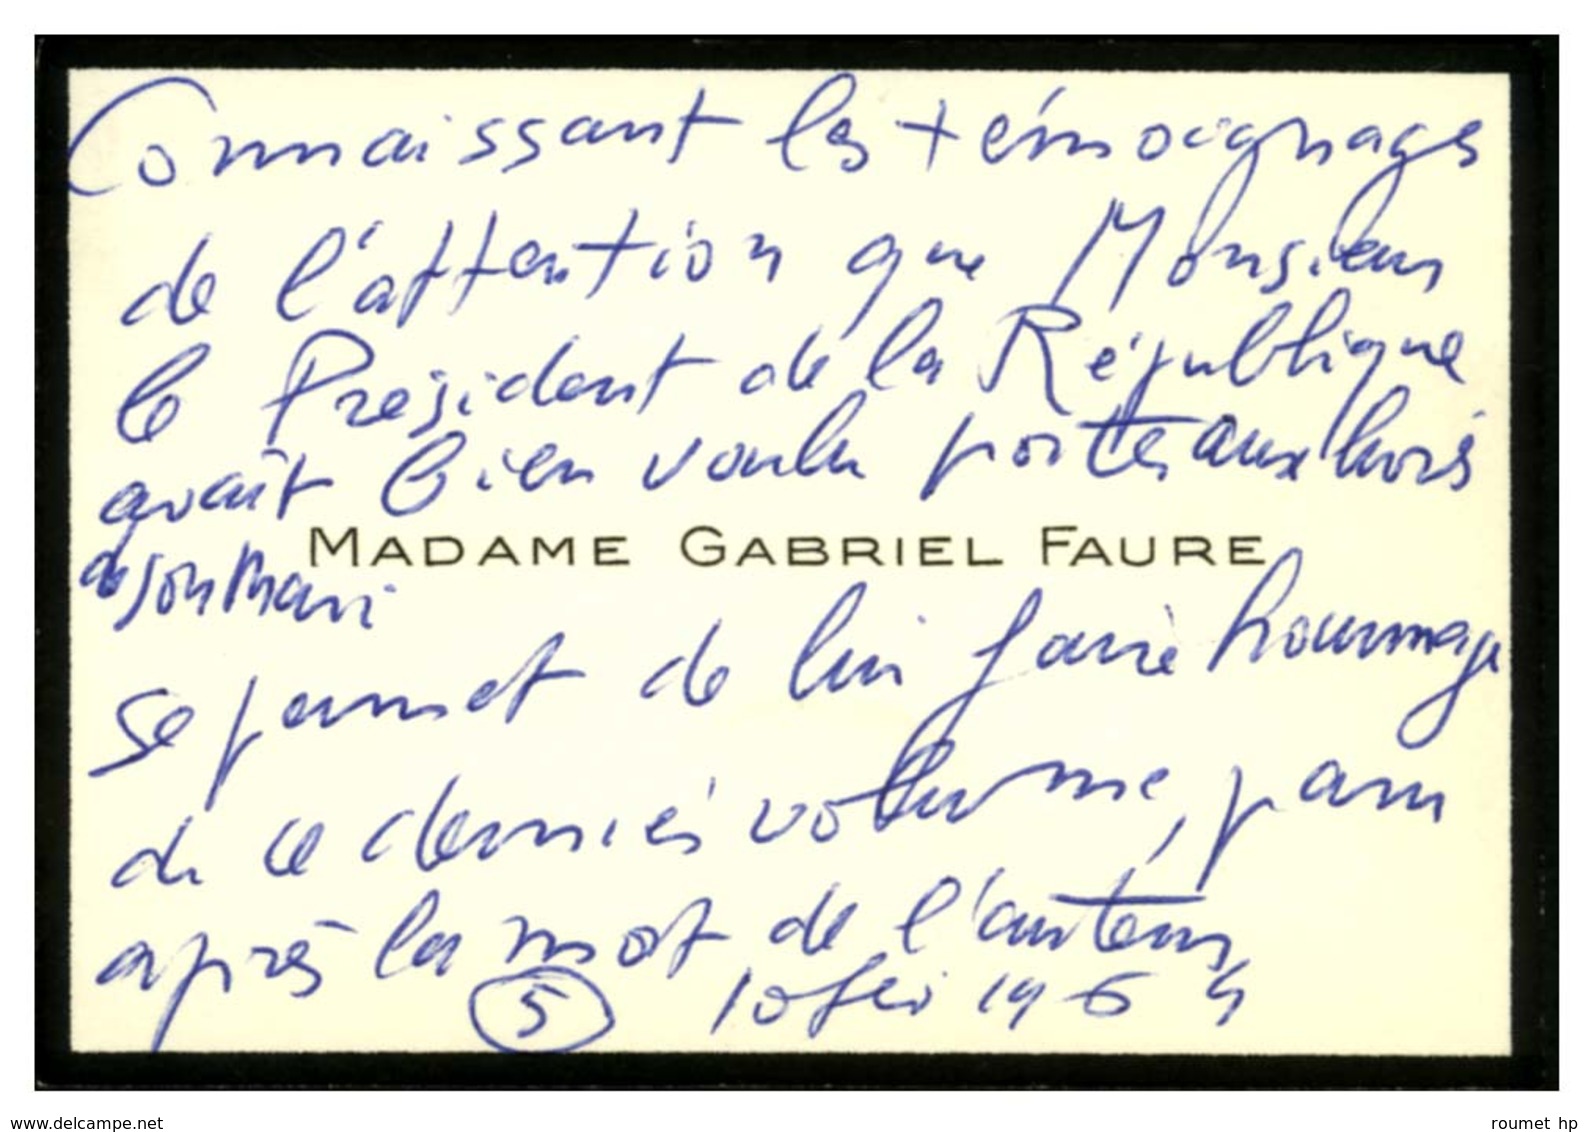 Connaissant les témoignages
de l'attention que Monsieur
le Président de la République
avait bien voulu porter aux livres
de son mari
MADAME GABRIEL FAURE
se permet de lui faire hommage
de ce dernier volume, paru
après la mort de l'auteur,
5 10 fév 1964
www.delcampe.net
roumet hp